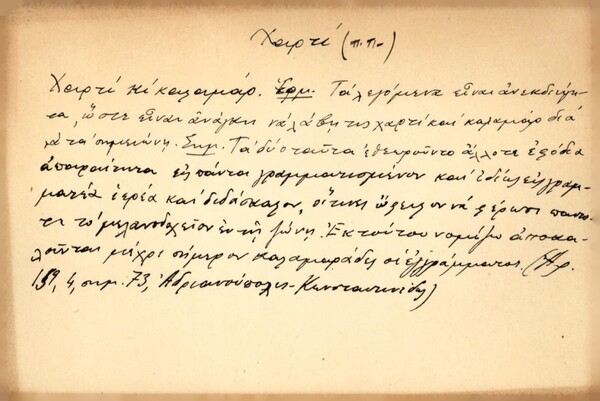 Χαρτί (π.π.)
Χαρτί κὶ καλαμάρ. Ἑρμ. Τὰ λεγόμενα εἶναι ἀνεκδιήγη-
τα, ὥστε εἶναι ἀνάγκη νὰ λάβῃ τις χαρτὶ καὶ καλαμάρι διὰ
νὰ τὰ σημειώνῃ. Σημ. Τὰ δύο ταῦτα ἐθεωροῦντο ἄλλοτε ἐφόδια
ἀπαραίτητα εἰς πάντα γραμματισμένον καὶ ἰδίως εἰς γραμ-
ματέα ἱερέα καὶ διδάσκαλον, οἵτινες ὤφειλον νὰ φέρωσι πάντο-
τε τὸ μελανοδοχεῖον ἐν τῇ ζώνῃ. Ἐκ τούτου νομίζω ἀποκα-
λοῦνται μέχρι σήμερον καλαμαράδες οἱ ἐγγράμματοι. (Ἀρ.
159, 4, σημ. 73, Ἀδριανούπολις - Κωνσταντινίδης)